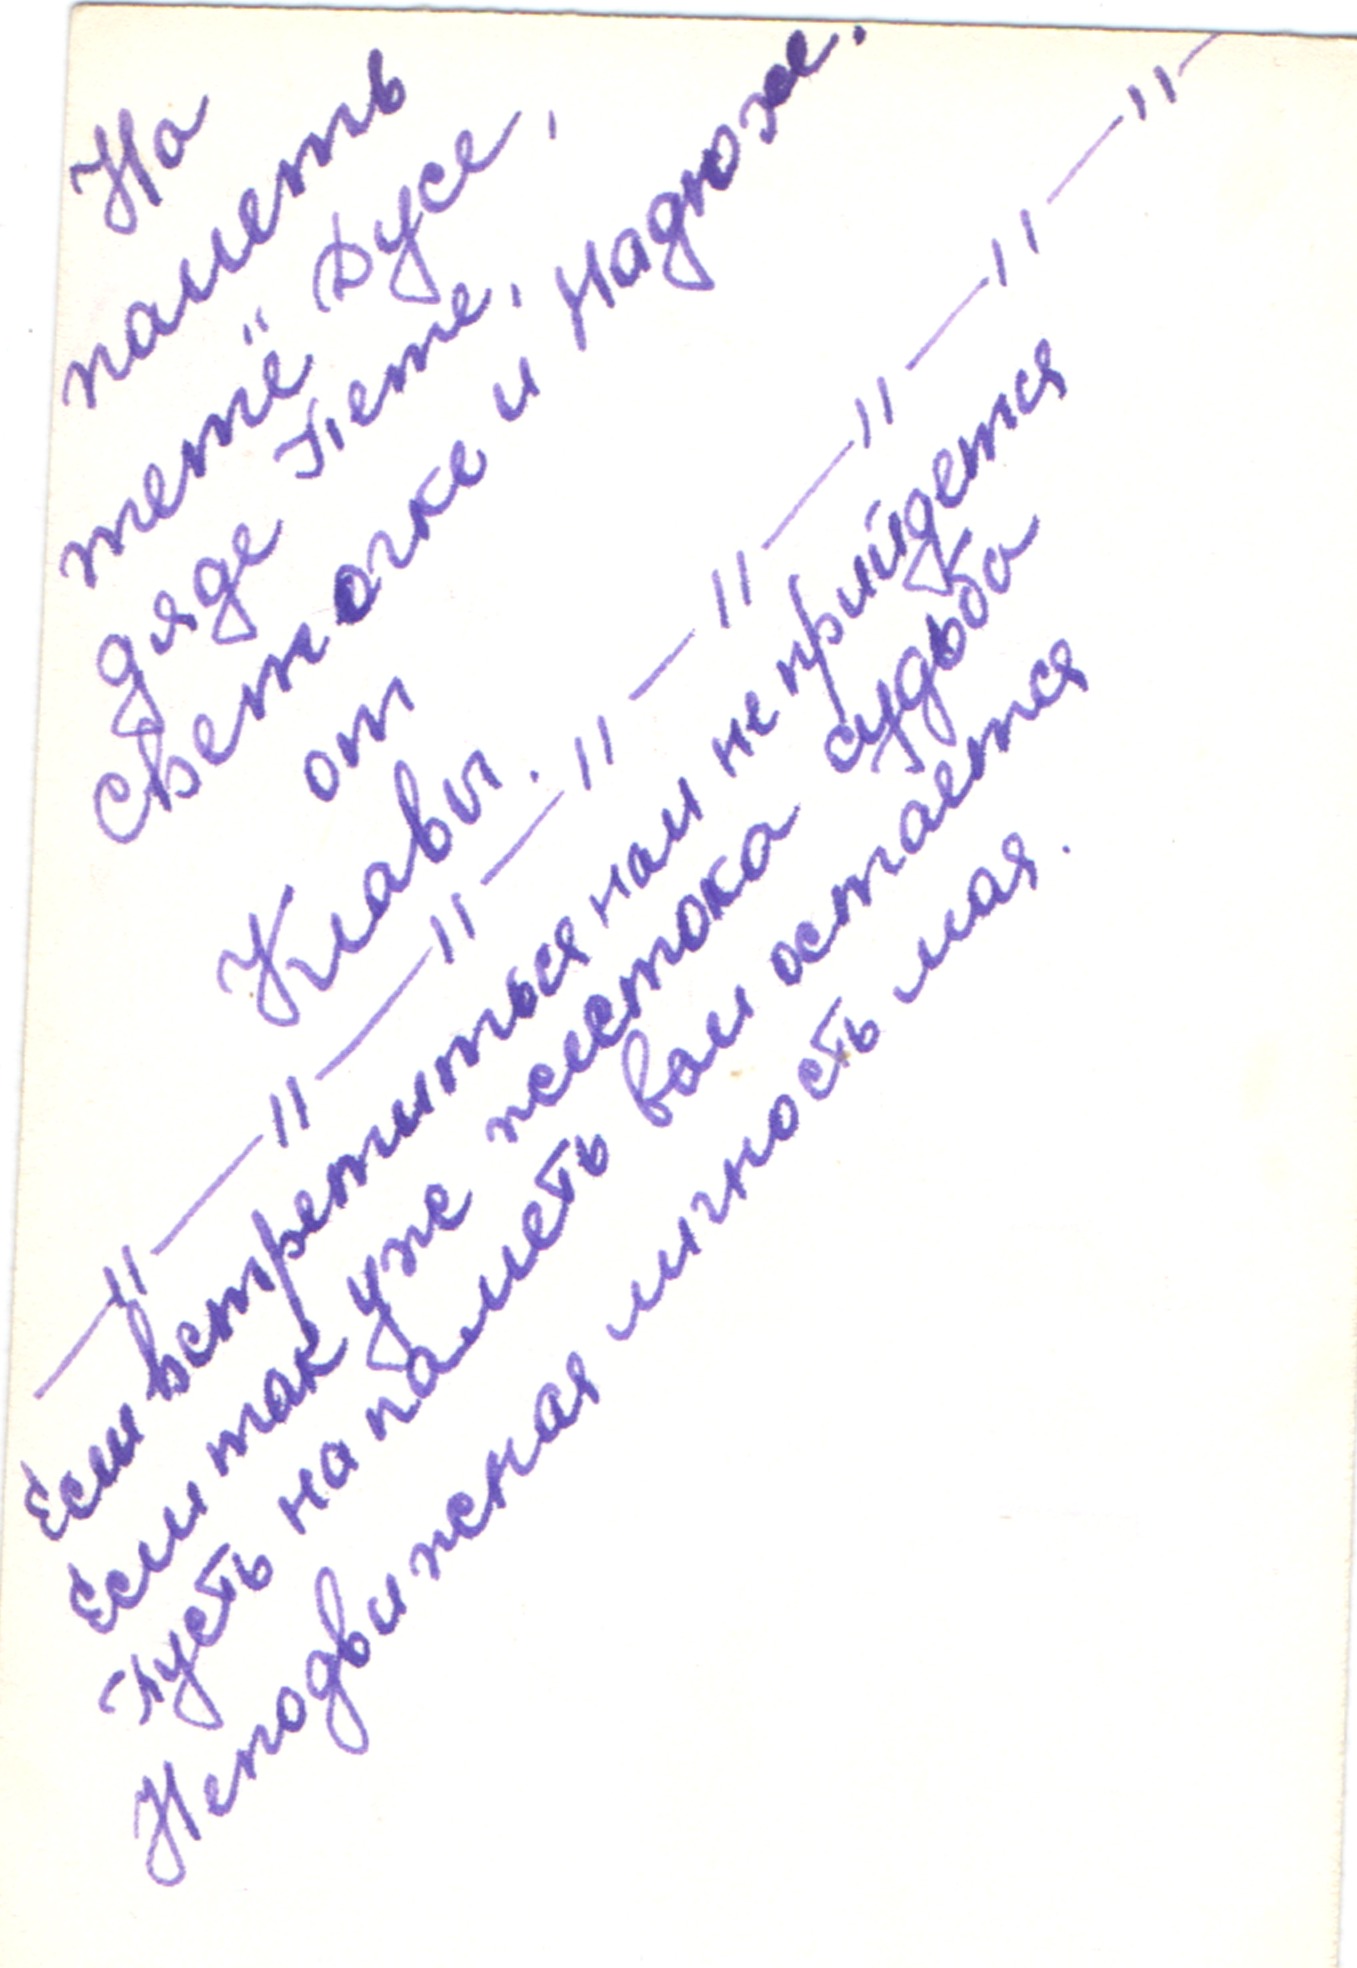 На
пометь
тетё Дусе,
дяде Пете,
Светочке и Надюже.
от
Клавы.
—"—"—"—"—"—"—"—"—"—
Если встретиться нам не прийдется
Если так уже жестока судьба
Пусть на пометь вам остаётся
Неподвижная личность мая.